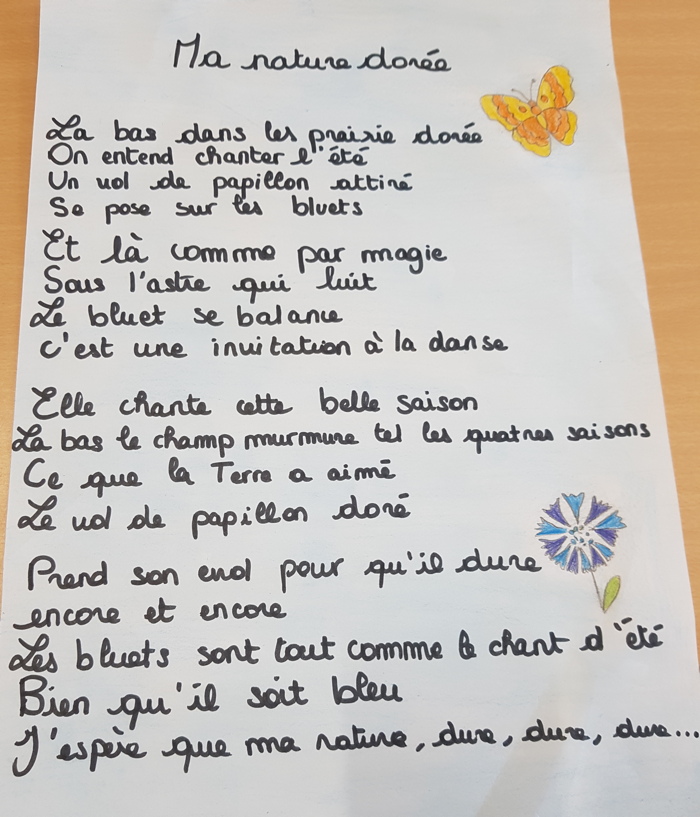 Ma nature dorée
La bas dans les prairie dorée
On entend chanter l'été
Un vol de papillon attiré
Se pose sur les bluets
Et là comme par magie
Sous l'astre qui luit
Le bluet se balance
C'est une invitation à la danse
Elle chante cette belle saison
La bas le champ murmure tel les quatres saisons
Ce que la Terre a aimé
Le vol de papillon doré
Prend son envol pour qu'il dure
encore et encore
Les bluets sont tout comme le chant d'été
Bien qu'il soit bleu
J'espère que ma nature, dure, dure, dure...